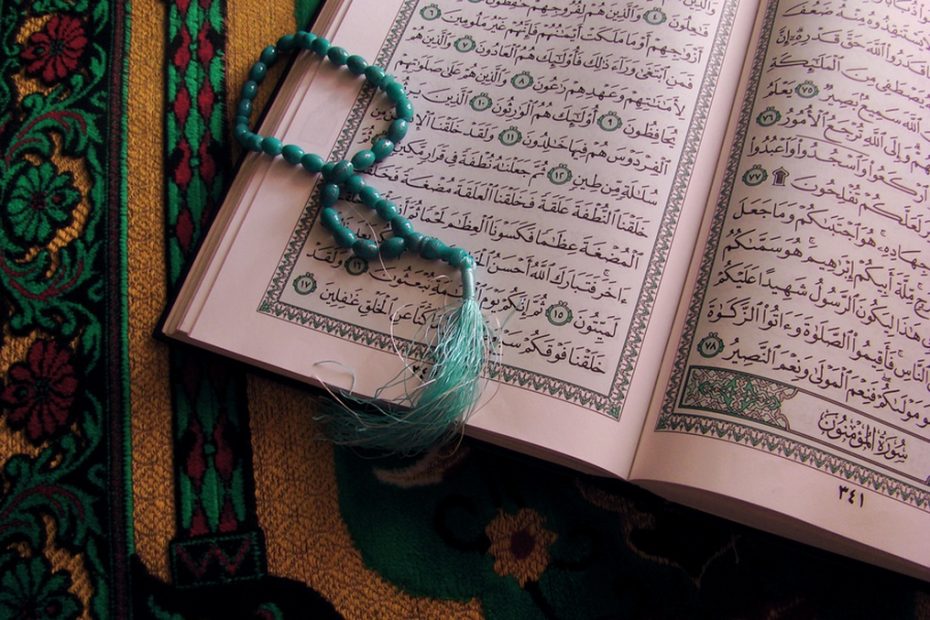 يَسْتَنقِذُوهُ مِنْهُ ضَعُفَ
مَا قَدَرُوا۟ ٱللَّهَ حَقَّ قَدْرِهِۦٓ إِنَّ
يَصْطَفِى مِنَ ٱلْمَلَٰٓئِكَةِ
ٱللَّهَ سَمِيعٌۢ بَصِيرٌ ٧٥ يَعْلَمُ
وَإِلَى ٱللَّهِ تُرْجَعُ ٱلْأُمُورُ ٧٦
ٱرْكَعُوا۟ وَٱسْجُدُوا۟ وَٱعْبُدُوا۟
لَعَلَّكُمْ تُفْلِحُونَ ۩ ٧٧
جِهَادِهِۦ هُوَ ٱجْتَبَىٰكُمْ وَمَا جَعَلَ
مِّلَّةَ أَبِيكُمْ إِبْرَٰهِيمَ هُوَ سَمَّىٰكُمُ
هَٰذَا لِيَكُونَ ٱلرَّسُولُ شَهِيدًا عَلَيْكُمْ
ٱلنَّاسِ فَأَقِيمُوا۟ ٱلصَّلَوٰةَ وَءَاتُوا۟ ٱلزَّكَوٰةَ
مَوْلَىٰكُمْ فَنِعْمَ ٱلْمَوْلَىٰ وَنِعْمَ ٱلنَّصِيرُ ٧٨
سُورَةُ المُؤْمِنُونَ
٣٤١
فَٰعِلُونَ ٤ وَٱلَّذِينَ هُمْ لِفُرُوجِهِمْ حَٰفِظُونَ
أَزْوَٰجِهِمْ أَوْ مَا مَلَكَتْ أَيْمَٰنُهُمْ فَإِنَّهُمْ غَيْرُ مَلُومِينَ ٦
فَمَنِ ٱبْتَغَىٰ وَرَآءَ ذَٰلِكَ فَأُو۟لَٰٓئِكَ هُمُ ٱلْعَادُونَ ٧ وَٱلَّذِينَ هُمْ
لِأَمَٰنَٰتِهِمْ وَعَهْدِهِمْ رَٰعُونَ ٨ وَٱلَّذِينَ هُمْ عَلَىٰ صَلَوَٰتِهِمْ
يُحَافِظُونَ ٩ أُو۟لَٰٓئِكَ هُمُ ٱلْوَٰرِثُونَ ١٠ ٱلَّذِينَ
ٱلْفِرْدَوْسَ هُمْ فِيهَا خَٰلِدُونَ ١١ وَلَقَدْ خَلَقْنَا ٱلْإِنسَٰنَ
سُلَٰلَةٍ مِّن طِينٍ ١٢ ثُمَّ جَعَلْنَٰهُ نُطْفَةً فِى قَرَارٍ مَّكِينٍ
خَلَقْنَا ٱلنُّطْفَةَ عَلَقَةً فَخَلَقْنَا ٱلْعَلَقَةَ مُضْغَةً فَخَلَقْنَا
ٱلْمُضْغَةَ عِظَٰمًا فَكَسَوْنَا ٱلْعِظَٰمَ لَحْمًا ثُمَّ
ءَاخَرَ فَتَبَارَكَ ٱللَّهُ أَحْسَنُ
لَمَيِّتُونَ ١٥ ثُمَّ إِنَّكُمْ يَوْمَ تُبْعَثُونَ ١٦ وَلَقَدْ
خَلَقْنَا فَوْقَكُمْ كُنَّا عَنِ ٱلْخَلْقِ غَٰفِلِينَ ١٧